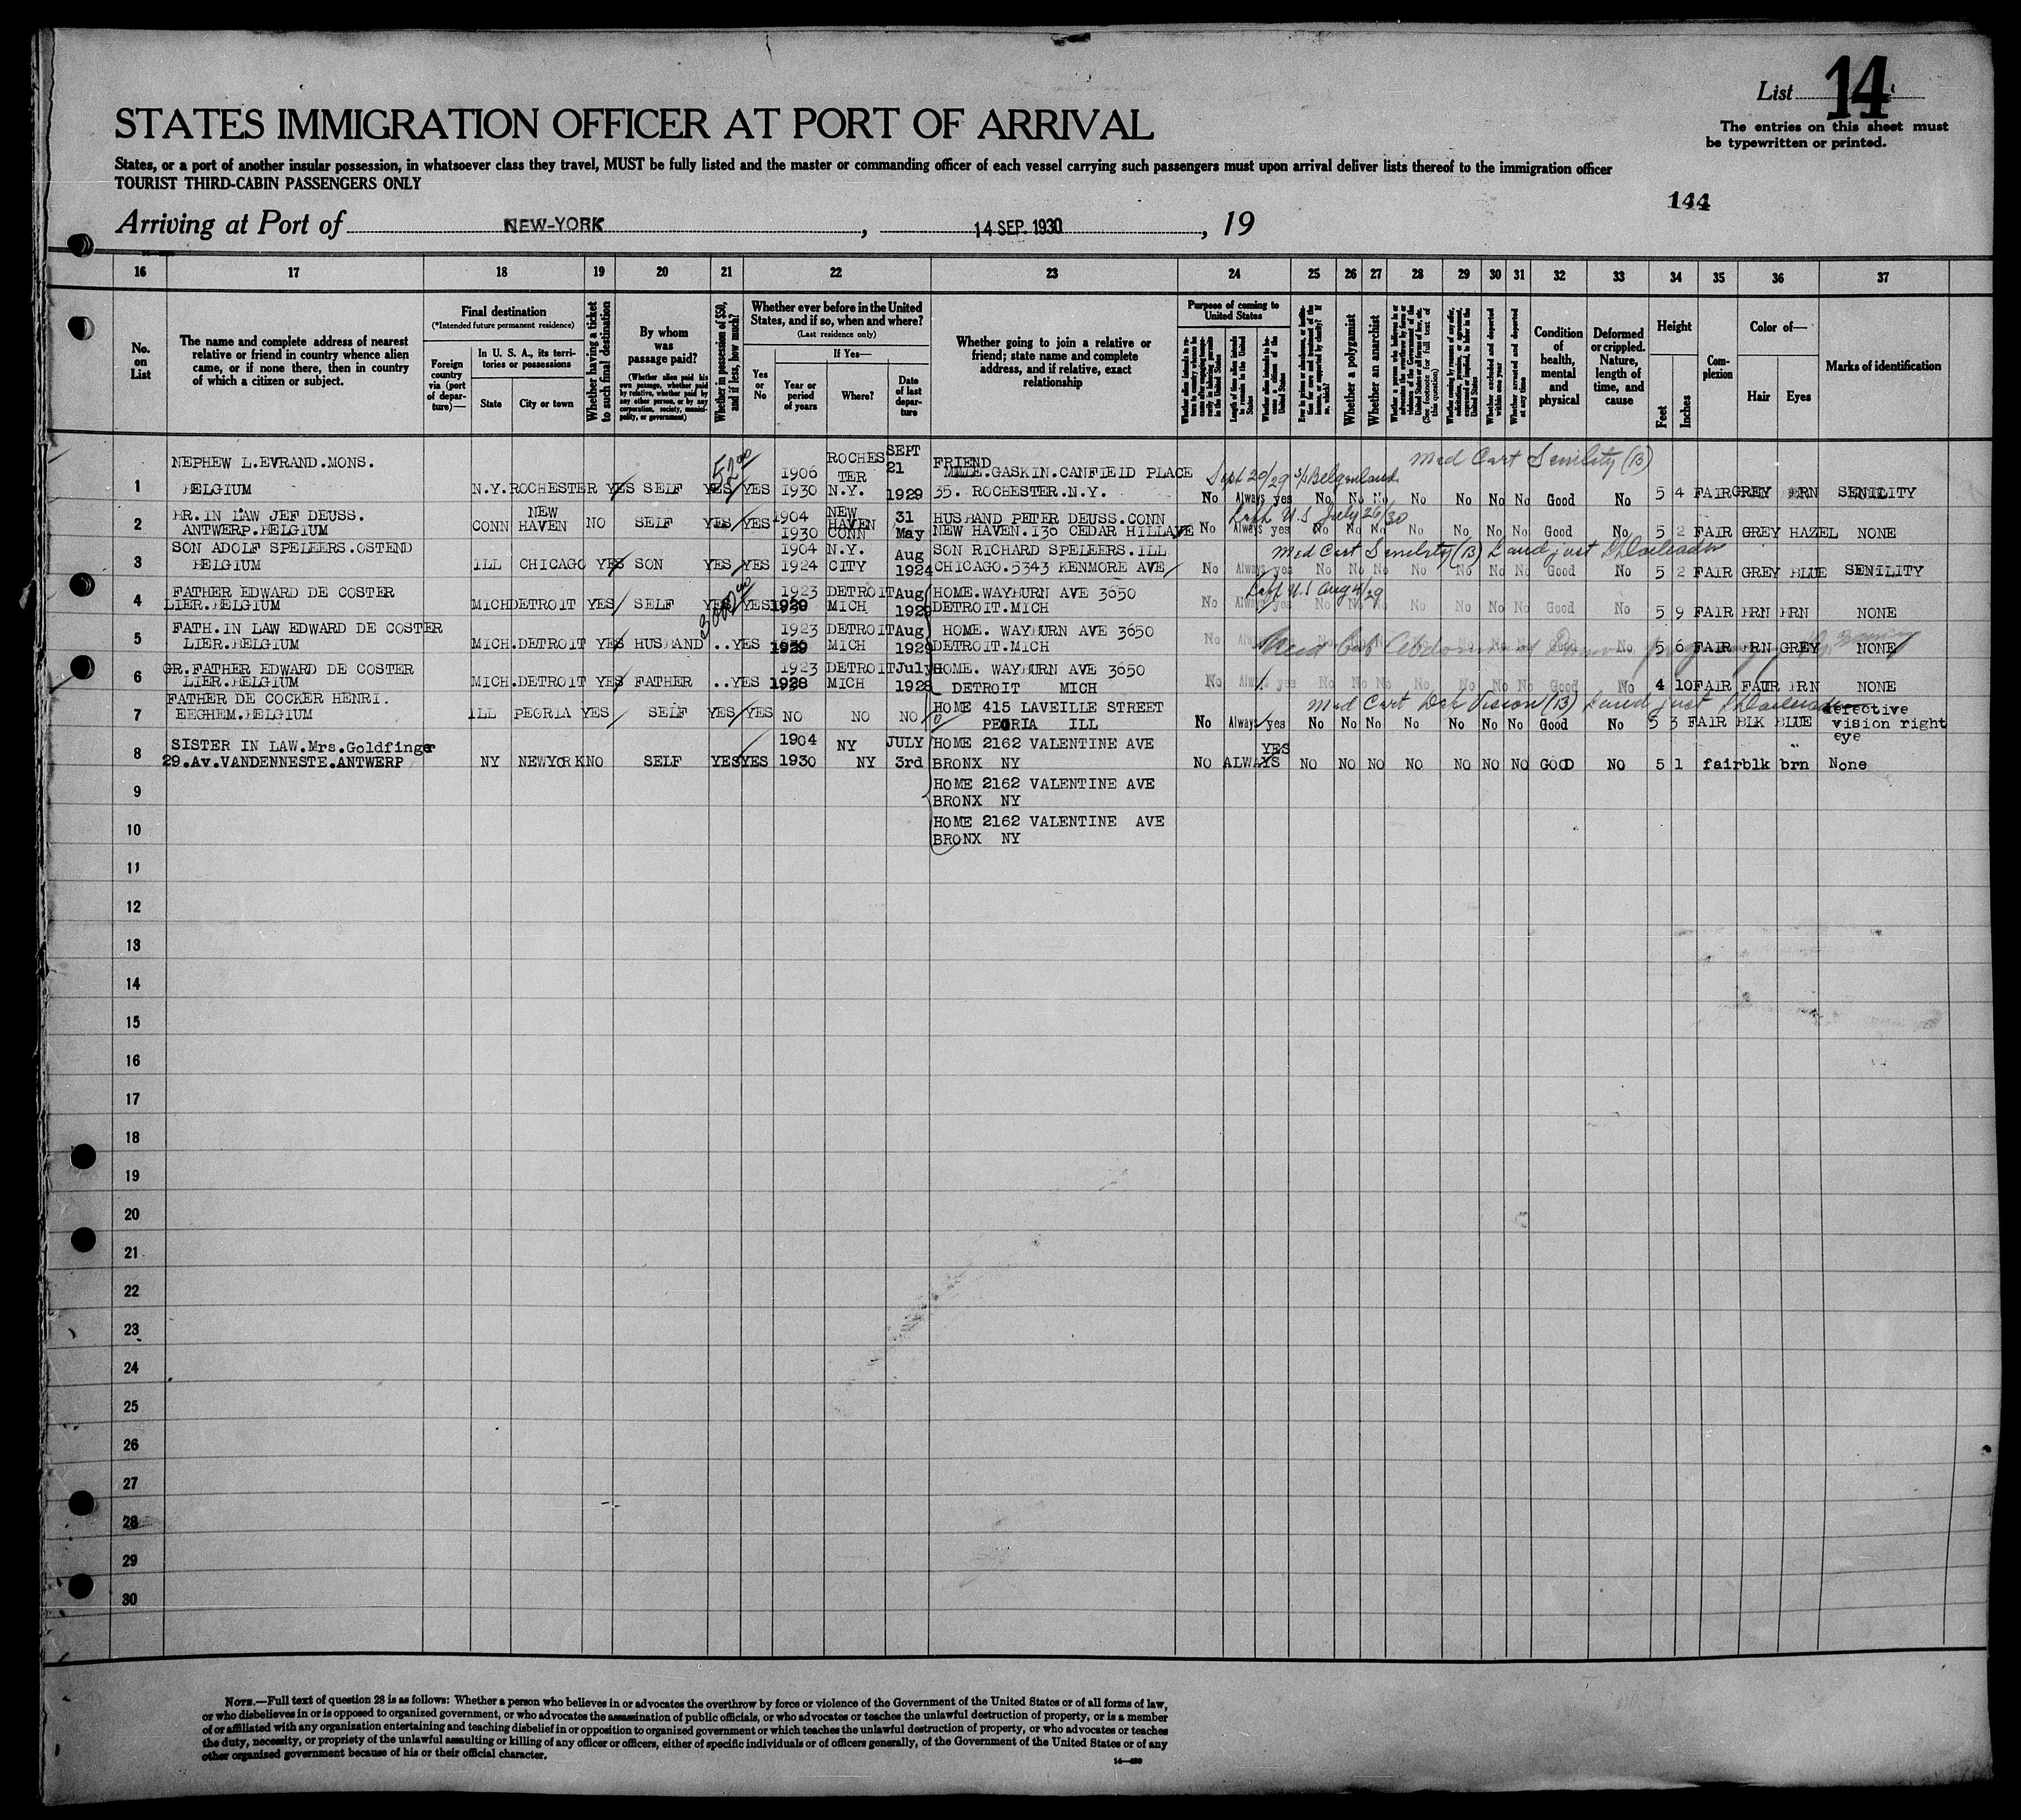 List 14
The entries on this sheet must
be typewritten or printed.
STATES IMMIGRATION OFFICER AT PORT OF ARRIVAL
States, or a port of another insular possession, in whatsoever class they travel, MUST be fully listed and the master or commanding officer of each vessel carrying such passengers must upon arrival deliver lists thereof to the immigration officer
TOURIST THIRD-CABIN PASSENGERS ONLY
144
Arriving at Port of NEW-YORK, 14 SEP. 1930, 19
16 17 18 19 20 21 22 23 24 25 26 27 28 29 30 31 32 33 34 35 36 37
No.
on
List
The name and complete address of nearest
relative or friend in country whence alien
came, or if none there, then in country
of which a citizen or subject.
Final destination
(*Intended future permanent residence)
Foreign
country
via (port
of depar-
ture)—
In U. S. A., its terri-
tories or possessions
State
City or town
Whether having a ticket
to such final destination
By whom
was
passage paid?
(Whether alien paid his
own passage, whether paid
by relative, whether paid by
any other person, or by any
corporation, society, munici-
pality, or government)
Whether in possession of $50,
and if less, how much?
Whether ever before in the United
States, and if so, when and where?
(Last residence only)
Yes
or
No
If Yes—
Year or
period
of years
Where?
Date of
last
depar-
ture
Whether going to join a relative or
friend; state name and complete
address, and if relative, exact
relationship
Purpose of coming to
United States
Length of time alien intends
to remain in the United
States
Whether alien intends to be-
come a citizen of the
United States
Whether a polygamist
Whether an anarchist
Whether excluded and deported
within one year
Whether arrested and deported
at any time
Condition
of
health,
mental
and
physical
Deformed
or crippled.
Nature,
length of
time, and
cause
Height
Feet
Inches
Com-
plexion
Color of—
Hair
Eyes
Marks of identification
Med Cert Senility (B)
NEPHEW L.EVRAND.MONS. 52.00 1906 ROCHES TER SEPT 21 FRIEND
MLLE.GASKIN.CANFIEID PLACE Sept 20/29 S/S Belgenland
1 BELGIUM N.Y. ROCHESTER YES SELF YES YES 1930 N.Y. 1929 35. ROCHESTER.N.Y. No Always yes No No No No No No No Good No 5 4 FAIR GREY BRN SENILITY
BR.IN LAW JEF DEUSS. NEW 1904 NEW 31 HUSBAND PETER DEUSS.CONN Left U.S July 26/30
2 ANTWERP.BELGIUM CONN HAVEN NO SELF YES YES 1930 HAVEN CONN May NEW HAVEN.136 CEDAR HILLAVE No Always yes No No No No No No No Good No 5 2 FAIR GREY HAZEL NONE
SON ADOLF SPELEERS.OSTEND 1904 N.Y. Aug SON RICHARD SPELEERS.ILL Med Cert Senility (B) Land just
3 BELGIUM ILL CHICAGO YES SON YES YES 1924 CITY 1924 CHICAGO.5343 KENMORE AVE No Always yes No No No No No No No Good No 5 2 FAIR GREY BLUE SENILITY
FATHER EDWARD DE COSTER 1923 DETROIT Aug HOME.WAYBURN AVE 3650 Left U.S Aug 4/29
4 LIER.BELGIUM MICH DETROIT YES SELF YES YES 1929 MICH 1929 DETROIT.MICH No Always yes No No No No No No No Good No 5 9 FAIR BRN BRN NONE
FATH.IN LAW EDWARD DE COSTER 1923 DETROIT Aug HOME. WAYBURN AVE 3650
5 LIER.BELGIUM MICH.DETROIT YES HUSBAND ..YES 1929 MICH 1929 DETROIT.MICH No 5 6 FAIR BRN GREY NONE
GR.FATHER EDWARD DE COSTER 1923 DETROIT July HOME. WAYBURN AVE 3650
6 LIER.BELGIUM MICH.DETROIT YES FATHER ..YES 1928 MICH 1928 DETROIT MICH No Always yes No No No No No No No Good No 4 10 FAIR FAIR BRN NONE
FATHER DE COCKER HENRI. HOME 415 LAVEILLE STREET Med Cert Def Vision (B) Land just
7 EEGHEM.BELGIUM ILL PEORIA YES SELF YES YES NO NO NO PEORIA ILL No Always yes No No No No No No No Good No 5 3 FAIR BLK BLUE defective
vision right
eye
SISTER IN LAW.Mrs.Goldfinger 1904 NY JULY HOME 2162 VALENTINE AVE YES
8 29.Av.VANDENNESTE.ANTWERP NY NEWYORK NO SELF YES YES 1930 NY 3rd BRONX NY NO ALWAYS NO NO NO NO NO NO NO GOOD NO 5 1 fair blk brn None
9 HOME 2162 VALENTINE AVE
BRONX NY
10 HOME 2162 VALENTINE AVE
BRONX NY
11
12
13
14
15
16
17
18
19
20
21
22
23
24
25
26
27
28
29
30
NOTE.—Full text of question 28 is as follows: Whether a person who believes in or advocates the overthrow by force or violence of the Government of the United States or of all forms of law,
or who disbelieves in or is opposed to organized government, or who advocates the assassination of public officials, or who advocates or teaches the unlawful destruction of property, or is a member
of or affiliated with any organization entertaining and teaching disbelief in or opposition to organized government or which teaches the unlawful destruction of property, or who advocates or teaches
the duty, necessity, or propriety of the unlawful assaulting or killing of any officer or officers, either of specific individuals or of officers generally, of the Government of the United States or of any
other organized government because of his or their official character.